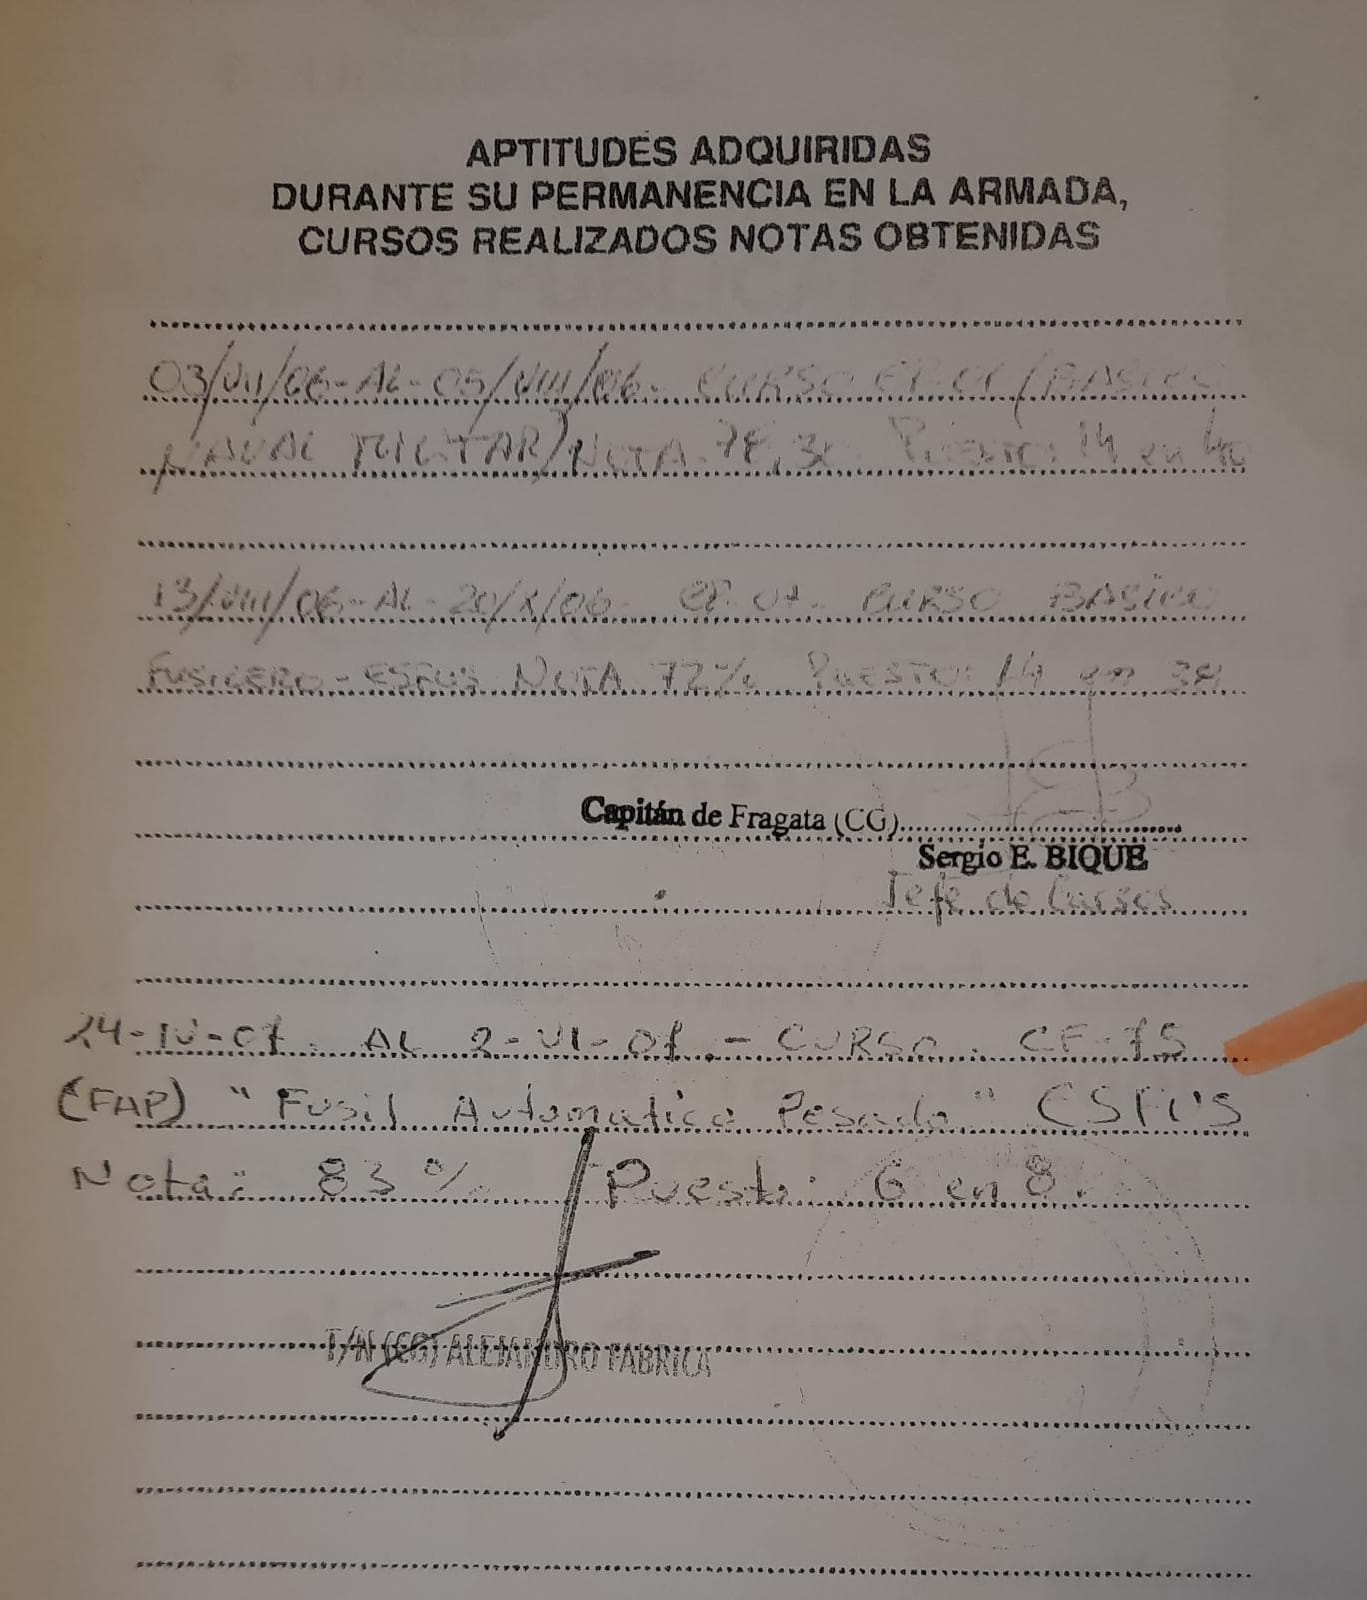 APTITUDES ADQUIRIDAS
DURANTE SU PERMANENCIA EN LA ARMADA,
CURSOS REALIZADOS NOTAS OBTENIDAS
03/VII/06-AL-05/VIII/06- CURSO
NAVAL MILITAR/NOTA 78,30 Puesto: 14 en 40
13/VIII/06-AL-20/X/06- CURSO BASICO
FUSILERO-ESFUS NOTA 72% PUESTO: 14 en 38
Capitán de Fragata (CG)
Sergio E. BIQUE
Jefe de Cursos
24-IV-07. AL 2-VI-07.- CURSO. CF-75
(FAP) "Fusil Automatico Pesado" ESFUS
Nota: 83% Puesto: 6 en 8.
T/N (CG) ALEJANDRO FABRICA